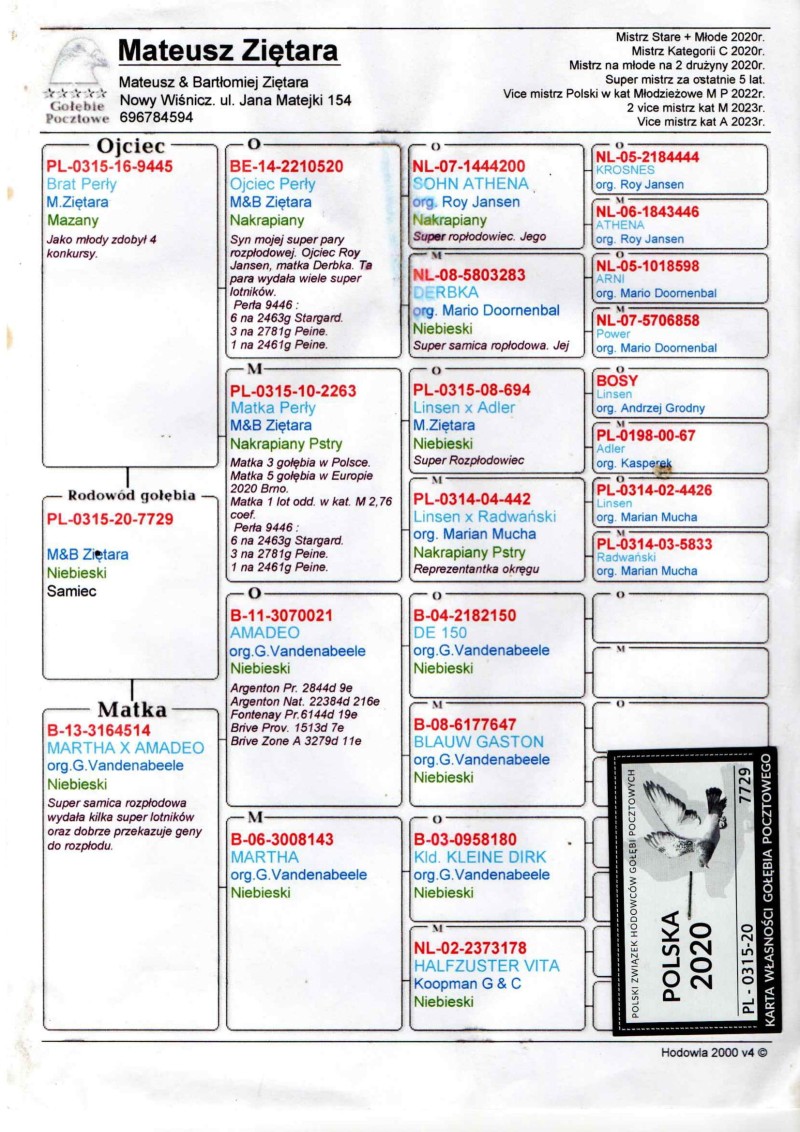 Mateusz Ziętara
Mateusz & Bartłomiej Ziętara
Nowy Wiśnicz. ul. Jana Matejki 154
696784594
Gołębie
Pocztowe
Mistrz Stare + Młode 2020r.
Mistrz Kategorii C 2020r.
Mistrz na młode na 2 drużyny 2020r.
Super mistrz za ostatnie 5 lat.
Vice mistrz Polski w kat Młodzieżowe M P 2022r.
2 vice mistrz kat M 2023r.
Vice mistrz kat A 2023r.
Ojciec
PL-0315-16-9445
Brat Perły
M.Ziętara
Mazany
Jako młody zdobył 4
konkursy.
Rodowód gołębia
PL-0315-20-7729
M&B Ziętara
Niebieski
Samiec
Matka
B-13-3164514
MARTHA X AMADEO
org.G.Vandenabeele
Niebieski
Super samica rozpłodowa
wydała kilka super lotników
oraz dobrze przekazuje geny
do rozpłodu.
O
BE-14-2210520
Ojciec Perły
M&B Ziętara
Nakrapiany
Syn mojej super pary
rozpłodowej. Ojciec Roy
Jansen, matka Derbka. Ta
para wydała wiele super
lotników.
Perła 9446 :
6 na 2463g Stargard.
3 na 2781g Peine.
1 na 2461g Peine.
M
PL-0315-10-2263
Matka Perły
M&B Ziętara
Nakrapiany Pstry
Matka 3 gołębia w Polsce.
Matka 5 gołębia w Europie
2020 Brno.
Matka 1 lot odd. w kat. M 2,76
coef.
Perła 9446 :
6 na 2463g Stargard.
3 na 2781g Peine.
1 na 2461g Peine.
O
B-11-3070021
AMADEO
org.G.Vandenabeele
Niebieski
Argenton Pr. 2844d 9e
Argenton Nat. 22384d 216e
Fontenay Pr.6144d 19e
Brive Prov. 1513d 7e
Brive Zone A 3279d 11e
M
B-06-3008143
MARTHA
org.G.Vandenabeele
Niebieski
O
NL-07-1444200
SOHN ATHENA
org. Roy Jansen
Nakrapiany
Super ropłodowiec. Jego
M
NL-08-5803283
DERBKA
org. Mario Doornenbal
Niebieski
Super samica ropłodowa. Jej
O
PL-0315-08-694
Linsen x Adler
M.Ziętara
Niebieski
Super Rozpłodowiec
M
PL-0314-04-442
Linsen x Radwański
org. Marian Mucha
Nakrapiany Pstry
Reprezentantka okręgu
O
B-04-2182150
DE 150
org.G.Vandenabeele
Niebieski
M
B-08-6177647
BLAUW GASTON
org.G.Vandenabeele
Niebieski
O
B-03-0958180
Kld. KLEINE DIRK
org.G.Vandenabeele
Niebieski
M
NL-02-2373178
HALFZUSTER VITA
Koopman G & C
Niebieski
O
NL-05-2184444
KROSNES
org. Roy Jansen
M
NL-06-1843446
ATHENA
org. Roy Jansen
O
NL-05-1018598
ARNI
org. Mario Doornenbal
M
NL-07-5706858
Power
org. Mario Doornenbal
O
BOSY
Linsen
org. Andrzej Grodny
M
PL-0198-00-67
Adler
org. Kasperek
O
PL-0314-02-4426
Linsen
org. Marian Mucha
M
PL-0314-03-5833
Radwański
org. Marian Mucha
O
M
O
POLSKI ZWIĄZEK HODOWCÓW GOŁĘBI POCZTOWYCH
POLSKA
2020
PL - 0315-20 7729
KARTA WŁASNOŚCI GOŁĘBIA POCZTOWEGO
Hodowla 2000 v4 ©